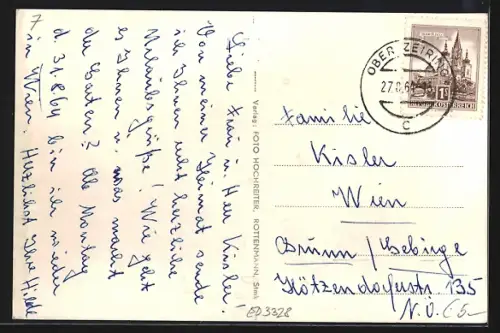 7
Liebe Frau u. Herr Kissler!
Von meiner Heimat sende
ich Ihnen recht herzliche
Urlaubsgrüße! Wie geht
es Ihnen u. was macht
der Garten? Ab Montag
d. 31.8.64 bin ich wieder
in Wien. Herzlichst Ihre Hilde
Verlag: FOTO HOCHREITER, ROTTENMANN, Stmk
ED3328
OBER ZEIRING
27.8.64
c
REPUBLIK ÖSTERREICH
1S
Familie
Kisler
Wien
Brunn / Gebirge
Hötzendorfstr. 135
N.Ö.